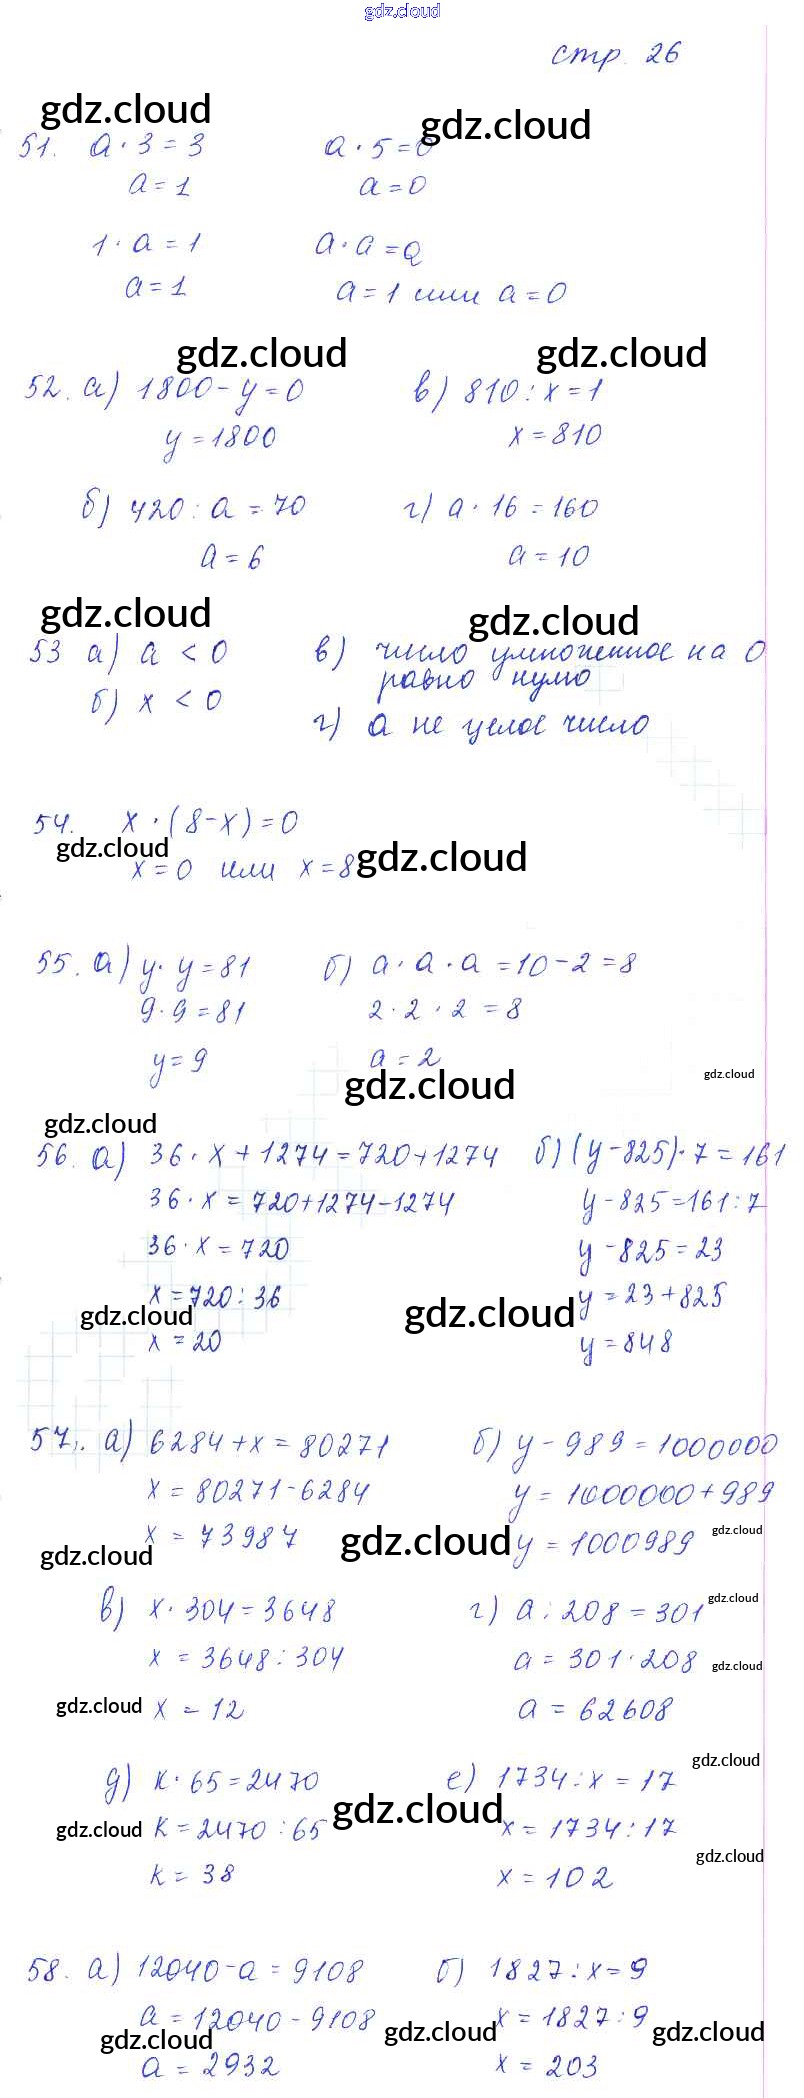 gdz.cloud
стр. 26
gdz.cloud gdz.cloud
51. a · 3 = 3 a · 5 = 0
a = 1 a = 0
1 · a = 1 a · a = a
a = 1 a = 1 или a = 0
gdz.cloud gdz.cloud
52. а) 1800 - y = 0 в) 810 : x = 1
y = 1800 x = 810
б) 420 : a = 70 г) a · 16 = 160
a = 6 a = 10
gdz.cloud gdz.cloud
53 а) a < 0 в) число умноженное на 0
равно нулю
б) x < 0
г) a не целое число
54. x · (8 - x) = 0
gdz.cloud gdz.cloud
x = 0 или x = 8
55. а) y · y = 81 б) a · a · a = 10 - 2 = 8
9 · 9 = 81 2 · 2 · 2 = 8
y = 9 a = 2
gdz.cloud gdz.cloud
gdz.cloud
56. а) 36 · x + 1274 = 720 + 1274 б) (y - 825) · 7 = 161
36 · x = 720 + 1274 - 1274 y - 825 = 161 : 7
36 · x = 720 y - 825 = 23
x = 720 : 36 y = 23 + 825
gdz.cloud gdz.cloud
x = 20 y = 848
57. а) 6284 + x = 80271 б) y - 989 = 1000000
x = 80271 - 6284 y = 1000000 + 989
x = 73987 gdz.cloud y = 1000989 gdz.cloud
gdz.cloud
в) x · 304 = 3648 г) a : 208 = 301 gdz.cloud
x = 3648 : 304 a = 301 · 208 gdz.cloud
gdz.cloud x = 12 a = 62608
д) k · 65 = 2470 е) 1734 : x = 17 gdz.cloud
gdz.cloud k = 2470 : 65 gdz.cloud x = 1734 : 17
gdz.cloud
k = 38 x = 102
58. а) 12040 - a = 9108 б) 1827 : x = 9
a = 12040 - 9108 x = 1827 : 9
gdz.cloud gdz.cloud gdz.cloud
a = 2932 x = 203